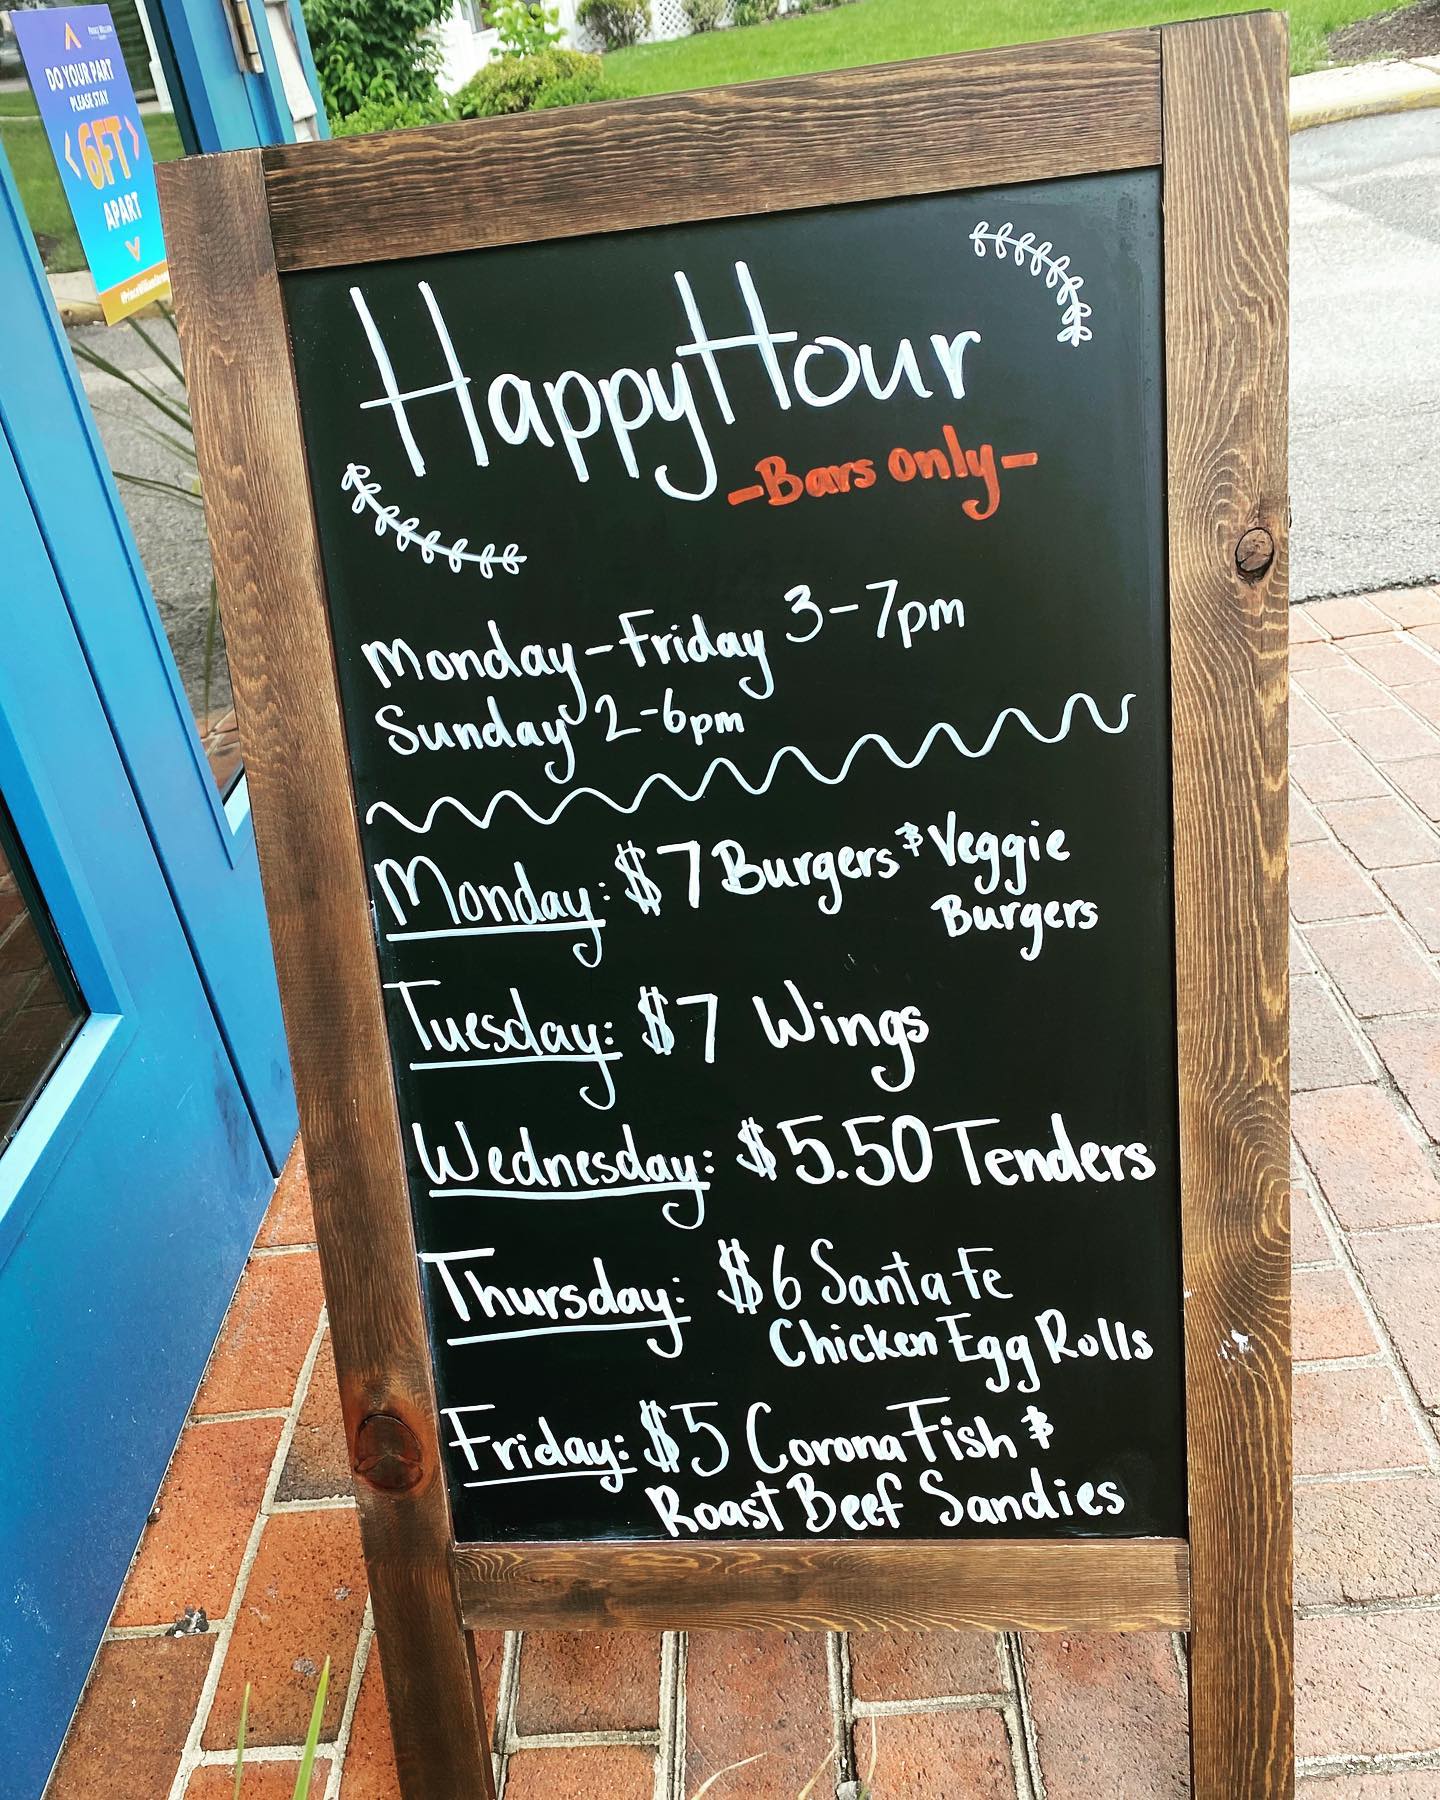 PRINCE WILLIAM
DO YOUR PART
PLEASE STAY
6FT
APART
Happy Hour
-Bars only-
Monday-Friday 3-7pm
Sunday 2-6pm
Monday: $7 Burgers & Veggie
Burgers
Tuesday: $7 Wings
Wednesday: $5.50 Tenders
Thursday: $6 Santa Fe
Chicken Egg Rolls
Friday: $5 Corona Fish &
Roast Beef Sandies